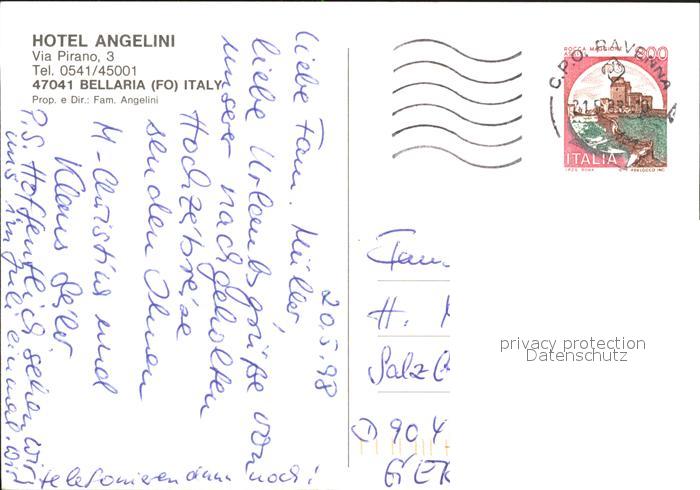 HOTEL ANGELINI
Via Pirano, 3
Tel. 0541/45001
47041 BELLARIA (FO) ITALY
Prop. e Dir.: Fam. Angelini
20.5.98
Liebe Fam. Müller
liebe Urlaubsgrüße von
unserer nachgeholten
Hochzeitsreise
senden Ihnen
M-Christine und
Klaus
P.S. Hoffentlich sehen wir
uns im Juli einmal. Wir
telefonieren dann noch!
C.P.O. RAVENNA
ROCCA MAGGIORE
800
ITALIA
I.P.Z.S. ROMA
Fam.
H.
Salz
D 904
privacy protection
Datenschutz